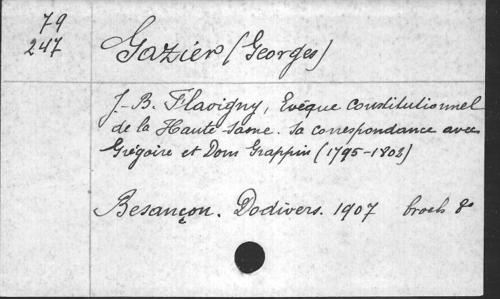 79
247
Gazier (Georges)
J-B. Flavigny, Evêque Constitutionnel
de la Haute-Saone. Sa correspondance avec
Grégoire et Dom Grappin (1795-1802)
Besançon. Dodivers. 1907 broch 8°